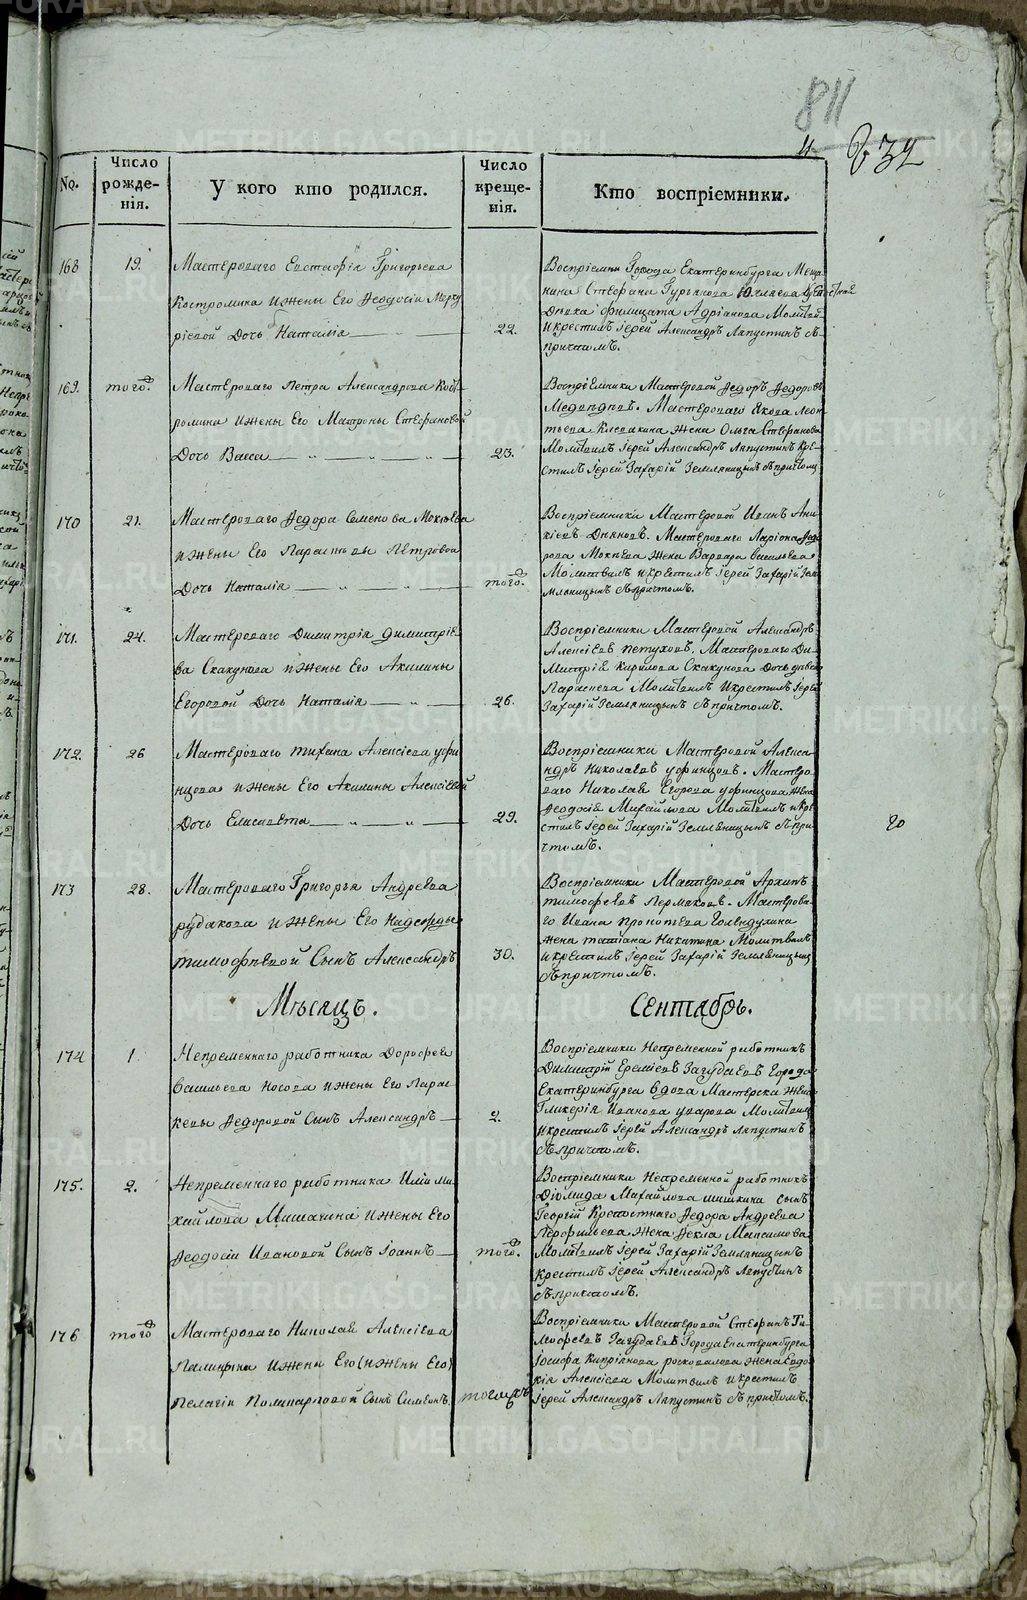 811
4 632
No. Число рожденія. У кого кто родился. Число крещенія. Кто воспріемники.
168 19. Мастероваго Евстафія Григорьева
Костромина и жены Его Феодосіи Мерку
ріевой Дочь Наталія 22.
Воспріемни Города Екатеринбурга Меща
нина Стефана Гурьянова
Девка Филицата Адріанова Молитвил
и крестилъ Іерей Александръ Ляпустинъ съ
причтомъ.
169. того Мастероваго Петра Александрова Кост
ромина и жены Его Матроны Стефановой
Дочь Васса 23.
Воспріемники Мастеровой Федоръ Федоровъ
Мастероваго Якова Леон
тьева жена Ольга Стефанова
Молитвилъ Іерей Александръ Ляпустинъ Кре
стилъ Іерей Захарій Земляницынъ съ причтом
170 21. Мастероваго Федора Семенова Мокеева
и жены Его Параскевы Петровой
Дочь Наталія того.
Воспріемники Мастеровой Иванъ Ани
кіевъ Мастероваго Ларіона Федо
рова Мокеева жена Варвара Васильева
Молитвилъ и крестилъ Іерей Захарій Зем
ляницынъ съ причтомъ.
171. 24. Мастероваго Димитрія Димитріе
ва Скакунова и жены Его Акилины
Егоровой Дочь Наталія 26.
Воспріемники Мастеровой Александръ
Алексіевъ Петуховъ. Мастероваго Ди
митрія Кирилова Скакунова Дочь девка
Параскева Молитвилъ и крестилъ Іерей
Захарій Земляницынъ съ причтомъ.
172. 26 Мастероваго Тихана Алексіева Уфи
нцова и жены Его Акилины Алексіевой
Дочь Елисавета 29.
Воспріемники Мастеровой Алекса
ндръ Николаевъ Уфинцовъ. Мастеро
ваго Николая Егорова Уфинцова жена
Феодосія Михайлова Молитвилъ и кре
стилъ Іерей Захарій Земляницынъ съ при
чтомъ.
20
173 28. Мастероваго Григорья Андреева
Рудакова и жены Его Надежды
Тимофеевой Сынъ Александръ 30.
Воспріемники Мастеровой Архипъ
Тимофеевъ Пермяковъ. Мастерова
го Ивана Прокопьева Голендухина
жена Татіана Никитина Молитвилъ
и крестилъ Іерей Захарій Земляницынъ
съ причтомъ.
Месяцъ. Сентябрь.
174 1. Непременнаго работника Дорофея
Васильева Носова и жены Его Парас
кевы Федоровой Сынъ Александръ 2.
Воспріемники Непременной работникъ
Димитрій Еремеевъ Загудаевъ Города
Екатеринбурга вдова Мастерска жена
Гликерія Иванова Уварова Молитвил
и крестилъ Іерей Александръ Ляпустинъ
съ причтомъ.
175. 2. Непременнаго работника Иліи Ми
хайлова и жены Его
Феодосіи Ивановой Сынъ Іоаннъ того.
Воспріемники Непременной работникъ
Діомида Михайлова Мишкина сынъ
Георгій Крепостнаго Федора Андреева
Перфильева жена Фекла Максимова
Молитвилъ Іерей Захарій Земляницынъ
крестилъ Іерей Александръ Ляпустинъ
съ причтомъ.
176 того Мастероваго Николая Алексіева
Палицына и жены Его (и жены Его)
Пелагіи Поликарповой Сынъ Симеонъ. тогожъ
Воспріемники Мастеровой Стефанъ Ти
мофеевъ Загудаевъ Города Екатеринбурга
Іосифа Кипріянова жена Евдо
кія Алексіева Молитвилъ и крестилъ
Іерей Александръ Ляпустинъ съ причтомъ.
METRIKI.GASO-URAL.RU